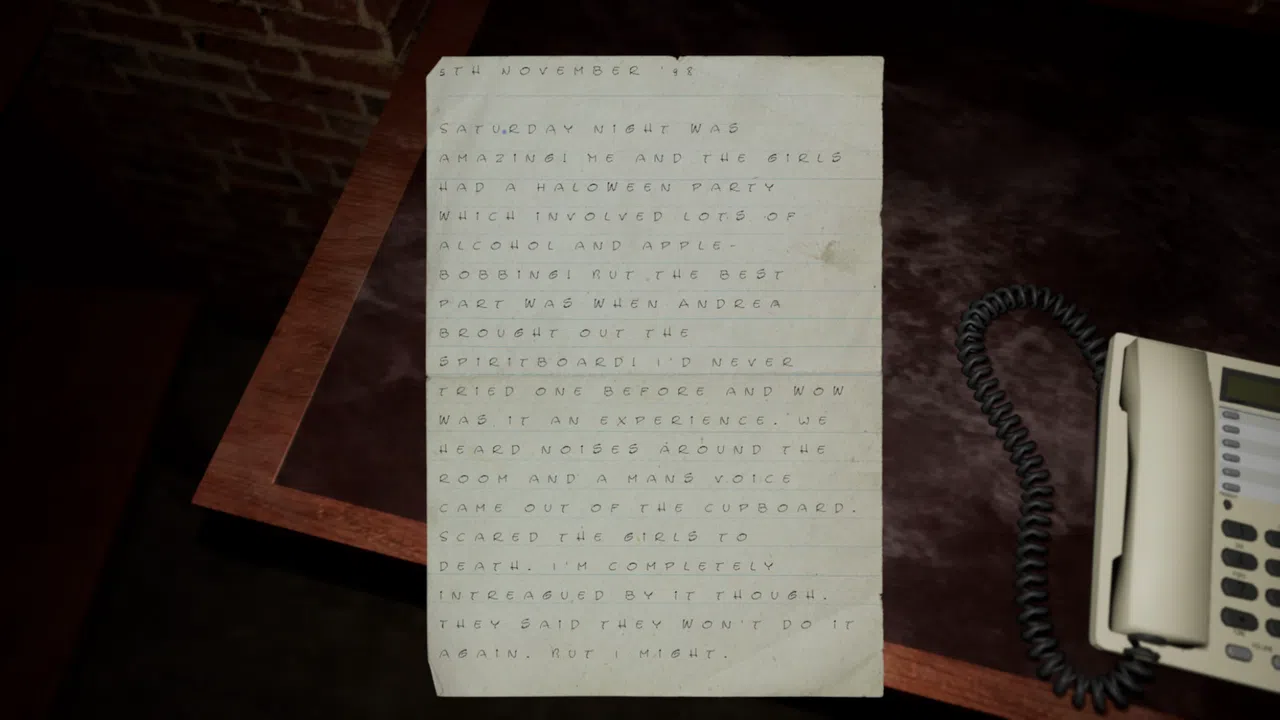 5TH NOVEMBER '98
SATURDAY NIGHT WAS
AMAZING! ME AND THE GIRLS
HAD A HALOWEEN PARTY
WHICH INVOLVED LOTS OF
ALCOHOL AND APPLE-
BOBBING! BUT THE BEST
PART WAS WHEN ANDREA
BROUGHT OUT THE
SPIRITBOARD! I'D NEVER
TRIED ONE BEFORE AND WOW
WAS IT AN EXPERIENCE. WE
HEARD NOISES AROUND THE
ROOM AND A MANS VOICE
CAME OUT OF THE CUPBOARD.
SCARED THE GIRLS TO
DEATH. I'M COMPLETELY
INTREAGUED BY IT THOUGH.
THEY SAID THEY WON'T DO IT
AGAIN. BUT I MIGHT.